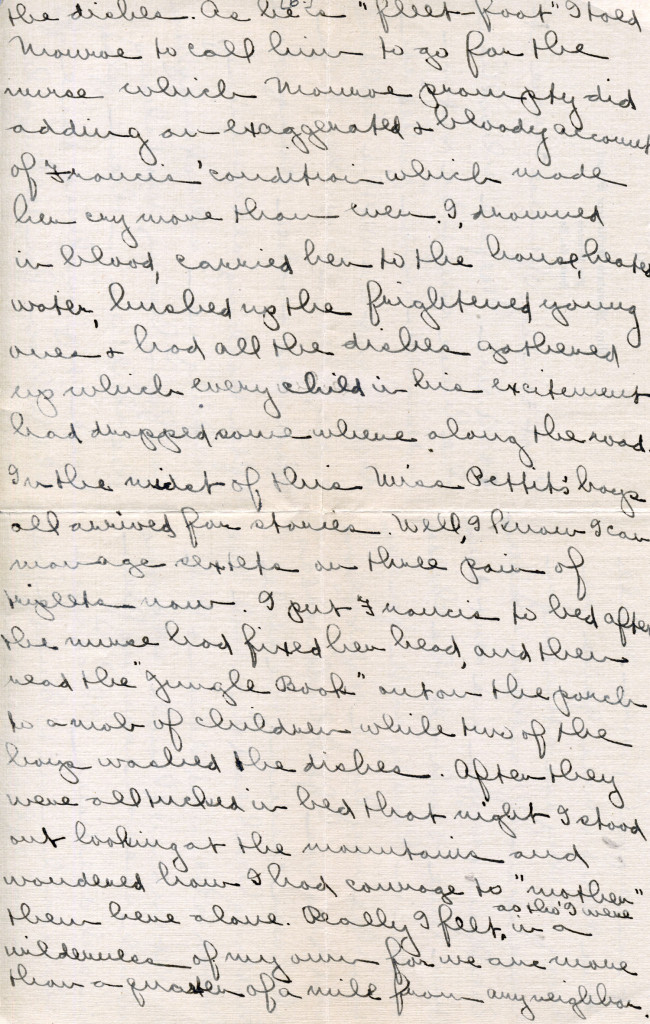 the dishes. As he's a "fleet-foot" I told
Monroe to call him to go for the
nurse which Monroe prompty did
adding an exaggerated & bloody account
of Francis' condition which made
her cry more than ever. I, drowned
in blood, carried her to the house, heated
water, hushed up the frightened young
ones & had all the dishes gathered
up which every child in his excitement
had dropped some where along the road.
In the midst of, this Miss Pettit's boys
all arrived for stories. Well, I know I can
manage sextets or three pair of
triplets now. I put Francis to bed after
the nurse had fixed her head, and then
read the "Jungle Book" out on the porch
to a mob of children while two of the
boys washed the dishes. After they
were all tucked in bed that night I stood
out looking at the mountains and
wondered how I had courage to "mother"
them here alone. Really I felt, as tho' I were in a
wilderness of my own for we are more
than a quarter of a mile from any neighbor.